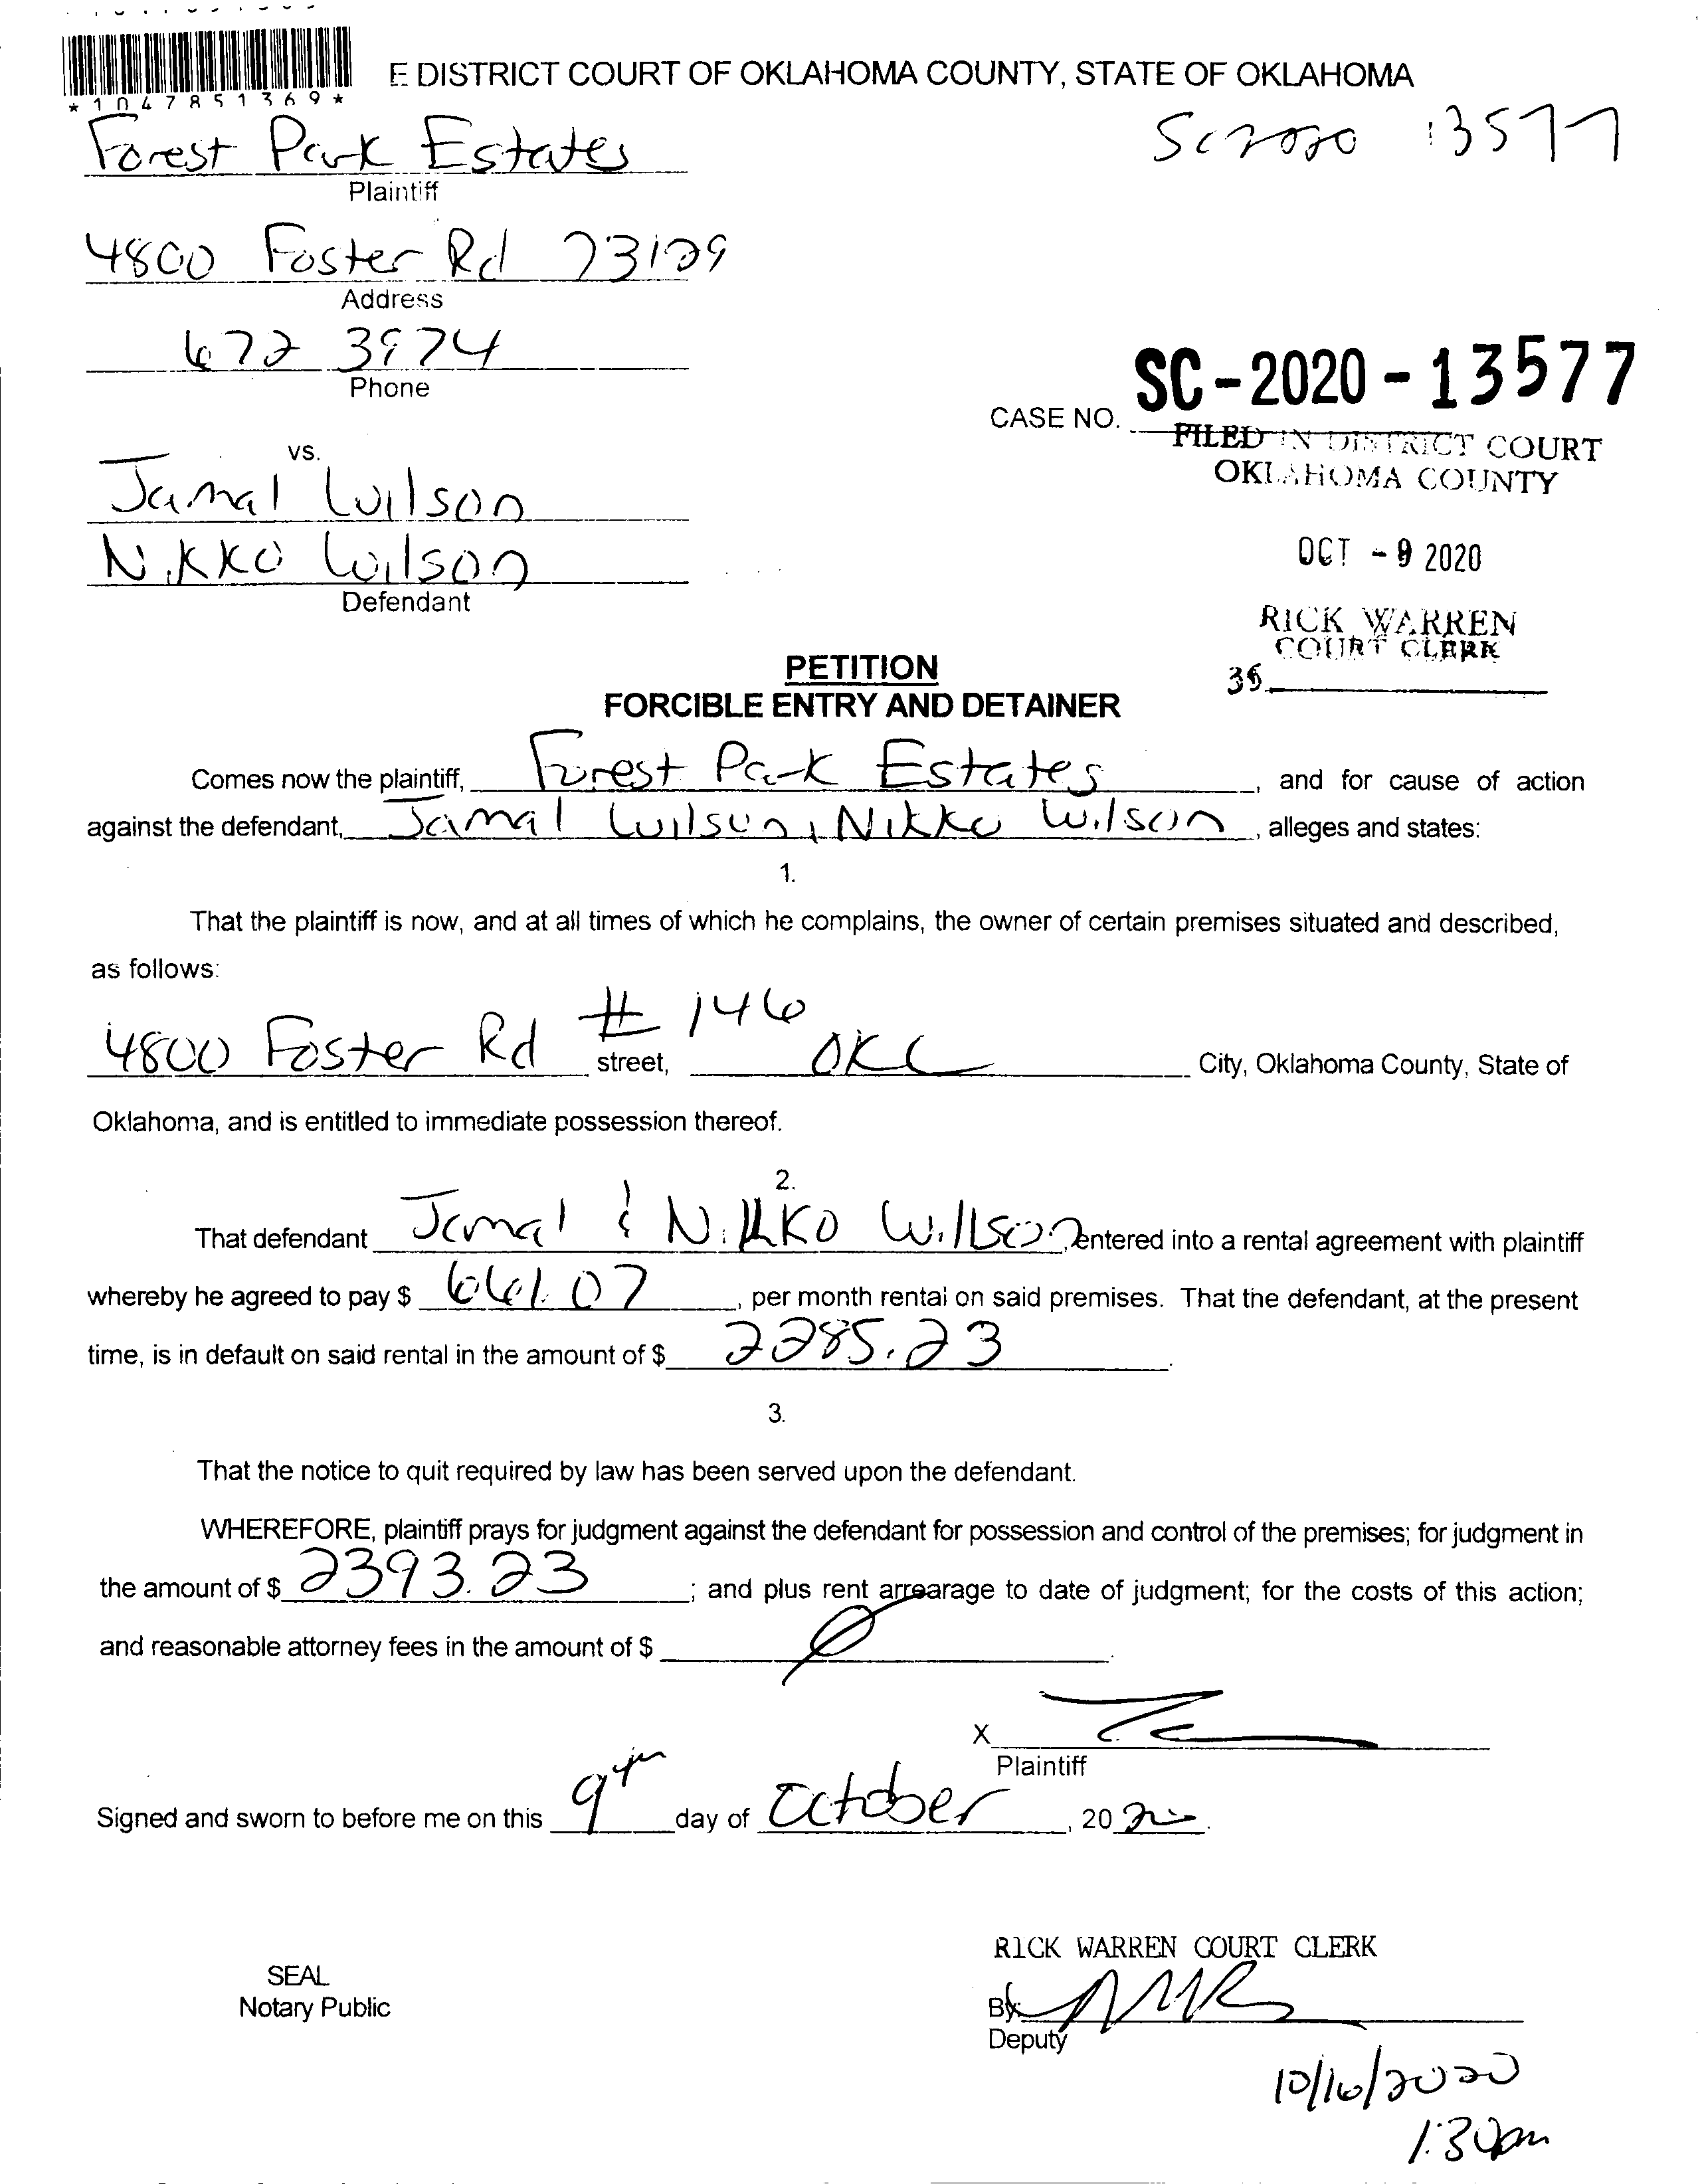 *1047851369*
E DISTRICT COURT OF OKLAHOMA COUNTY, STATE OF OKLAHOMA
SC2020 13577
Forest Park Estates
Plaintiff
4800 Foster Rd 73129
Address
672 3974
Phone
CASE NO. SC-2020-13577
FILED IN DISTRICT COURT
OKLAHOMA COUNTY
vs.
Jamal Wilson
Nikko Wilson
Defendant
OCT - 9 2020
RICK WARREN
COURT CLERK
PETITION
FORCIBLE ENTRY AND DETAINER
Comes now the plaintiff, Forest Park Estates, and for cause of action
against the defendant, Jamal Wilson, Nikko Wilson, alleges and states:
1.
That the plaintiff is now, and at all times of which he complains, the owner of certain premises situated and described,
as follows:
4800 Foster Rd # 146 street, OKC City, Oklahoma County, State of
Oklahoma, and is entitled to immediate possession thereof.
2.
That defendant Jamal & Nikko Willson, entered into a rental agreement with plaintiff
whereby he agreed to pay $ 661.07, per month rental on said premises. That the defendant, at the present
time, is in default on said rental in the amount of $ 2285.23.
3.
That the notice to quit required by law has been served upon the defendant.
WHEREFORE, plaintiff prays for judgment against the defendant for possession and control of the premises; for judgment in
the amount of $ 2393.23; and plus rent arrearage to date of judgment; for the costs of this action;
and reasonable attorney fees in the amount of $
X
Plaintiff
Signed and sworn to before me on this 9th day of October, 2020.
RICK WARREN COURT CLERK
SEAL
Notary Public
By:
Deputy
10/16/2020
1:30pm